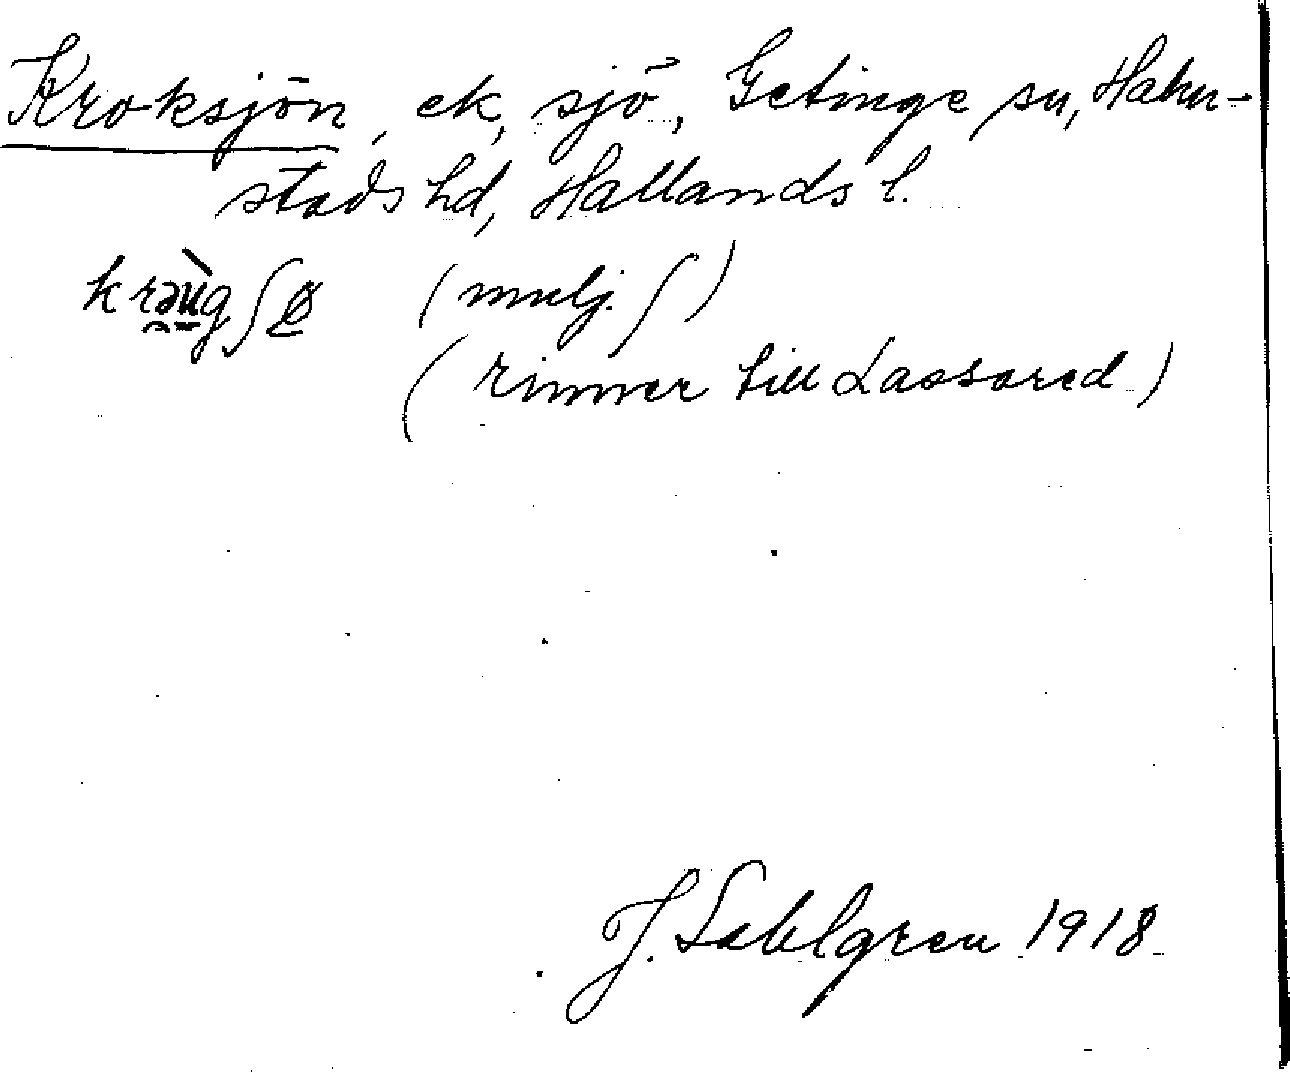 Kroksjön, ek, sjö, Getinge sn, Halm-
stads hd, Hallands l.
krəùgʃø (mulj. ʃ)
(rinner till Lassared)
J. Sahlgren 1918